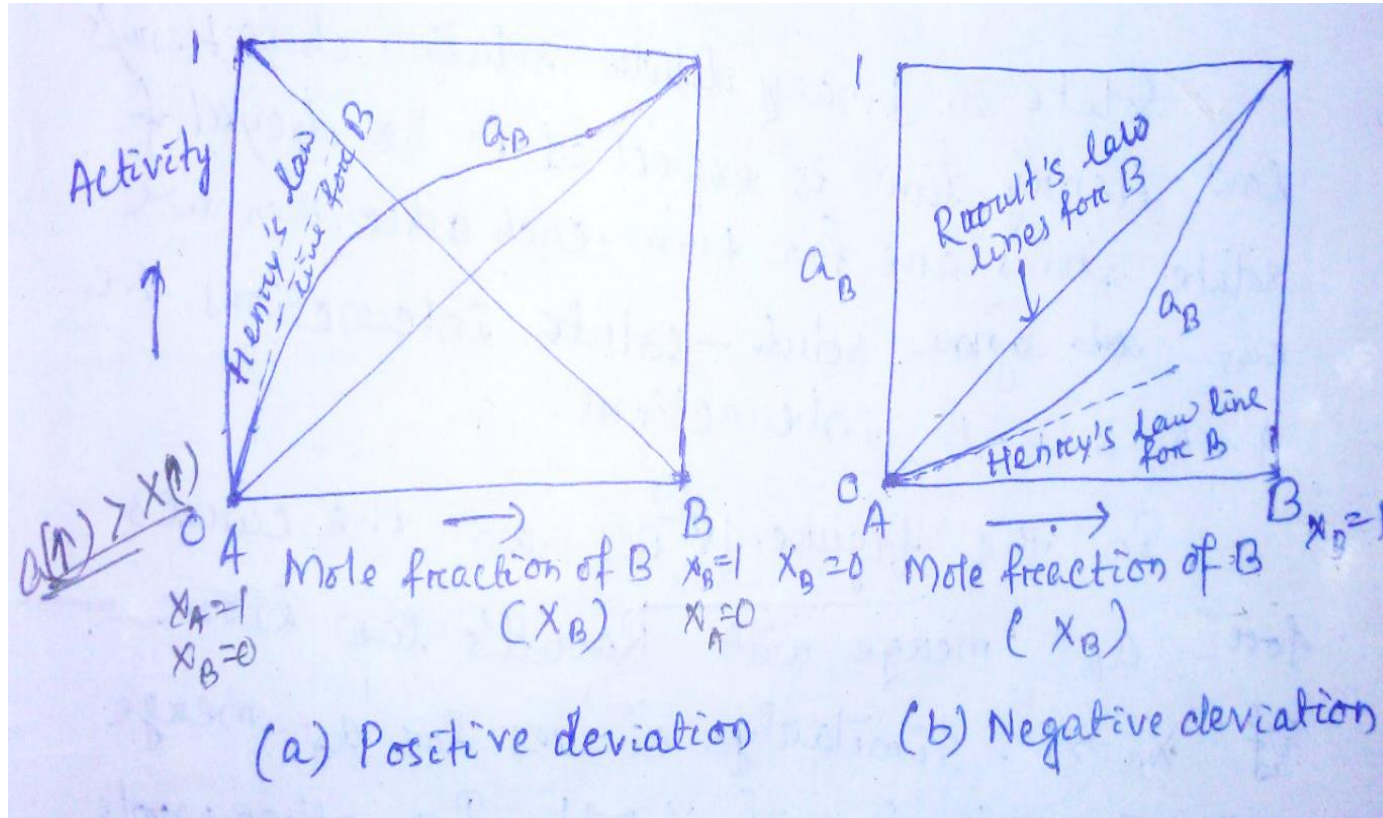 1
Activity
Henry's law
line for B
aB
a(↑) > x(↑)
0
A
B
Mole fraction of B
(XB)
XA=1
XB=0
XB=1
XA=0
(a) Positive deviation
1
aB
Raoult's law
lines for B
aB
Henry's law line
for B
0
A
B
XB=0
Mole fraction of B
(XB)
XB=1
(b) Negative deviation